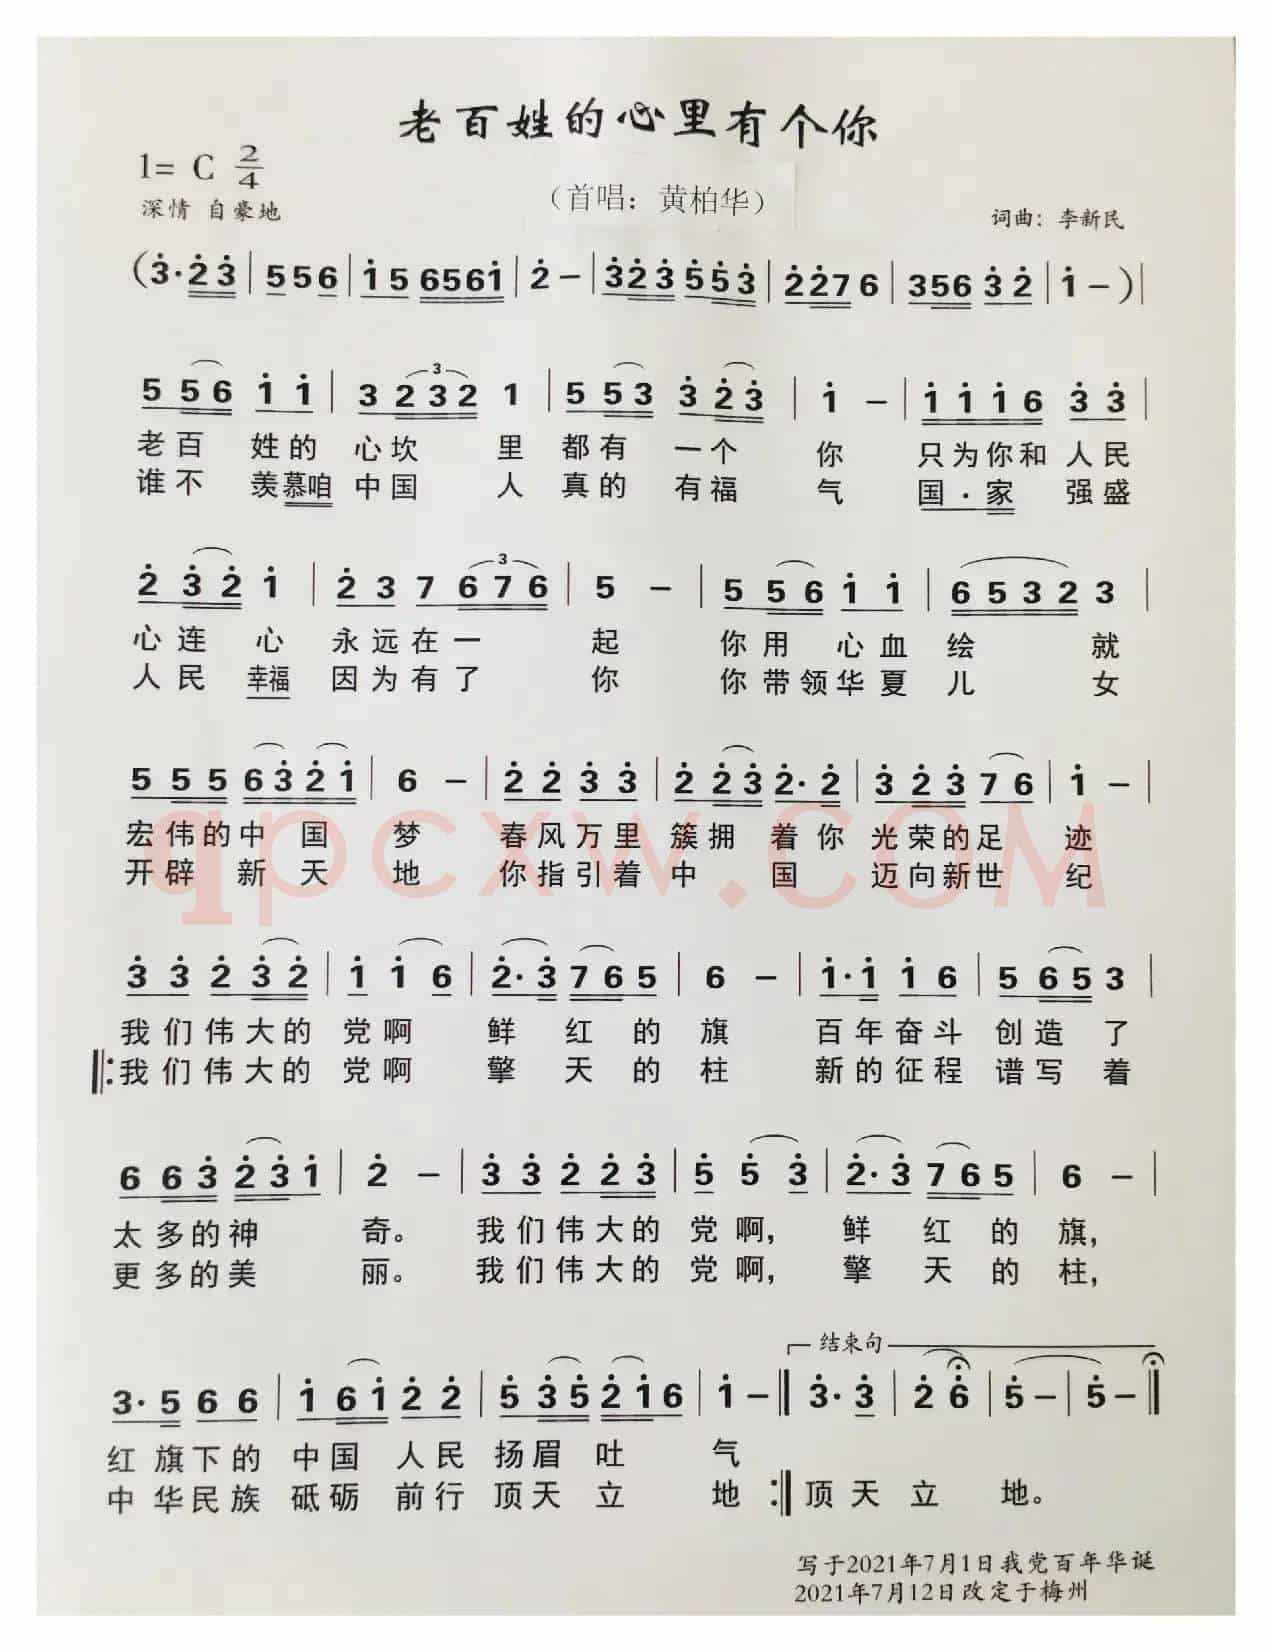 老百姓的心里有个你
1= C 2/4
（首唱：黄柏华）
深情 自豪地
词曲：李新民
(3·23 | 556 | 15 6561 | 2 – | 323 553 | 2276 | 356 32 | 1 – )|
5 56 1 1 | 3 232 1 | 5 53 3 23 | 1 – | 1 1 1 6 3 3 |
老百 姓的 心坎 里 都有 一个 你 只为你和 人民
谁不 羡慕咱 中国 人 真的 有福 气 国·家 强盛
2 32 1 | 2 3 7 676 | 5 – | 5 56 1 1 | 6532 3 |
心连 心 永远在一 起 你用 心血 绘 就
人民 幸福 因为有了 你 你带领华夏 儿 女
5 55 6321 | 6 – | 2 2 3 3 | 2 23 2·2 | 3 23 76 | 1 – |
宏伟的中 国 梦 春风万里 簇拥 着你 光荣的足 迹
开辟 新 天 地 你指引着 中 国 迈向新世 纪
3 3 2 32 | 1 1 6 | 2·3 765 | 6 – | 1·1 1 6 | 5 65 3 |
我们伟大的 党啊 鲜 红 的 旗 百年奋斗 创造 了
‖:我们伟大的 党啊 擎 天 的 柱 新的征程 谱写 着
6 63 231 | 2 – | 3 3 2 23 | 5 5 3 | 2·3 765 | 6 – |
太多的神 奇。 我们伟大的 党啊， 鲜 红 的 旗，
更多的美 丽。 我们伟大的 党啊， 擎 天 的 柱，
结束句
3·5 6 6 | 1 61 2 2 | 5 35 216 | 1 – ‖ 3·3 | 2 6 | 5 – | 5 – ‖
红旗下的 中国 人民 扬眉 吐 气
中华民族 砥砺 前行 顶天 立 地 :‖ 顶天 立 地。
写于2021年7月1日我党百年华诞
2021年7月12日改定于梅州
qpcxw.COM